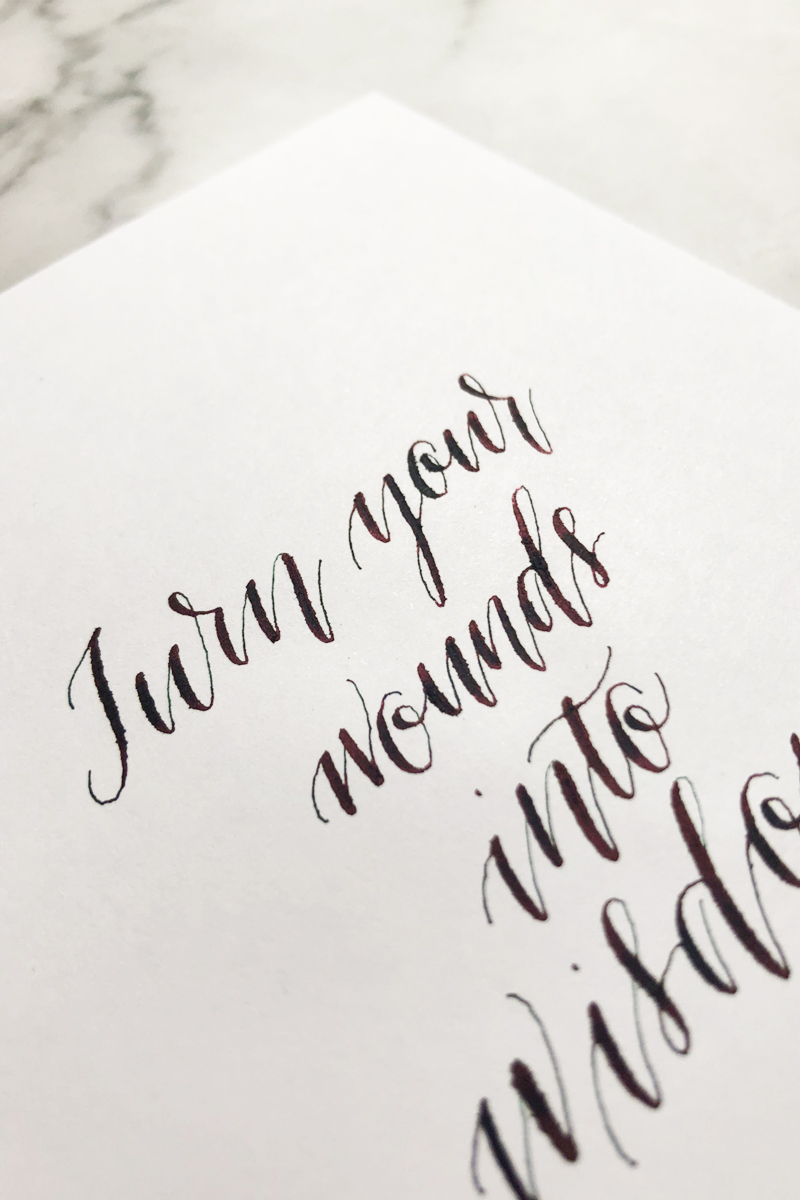 Turn your
wounds
into
wisdo